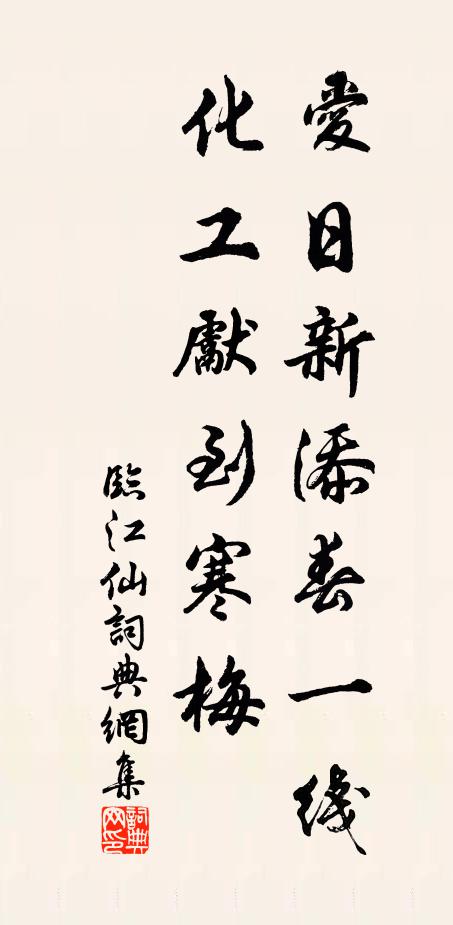 愛日新添春一綫
化工獻到寒梅
臨江仙詞典網集
詞典網印